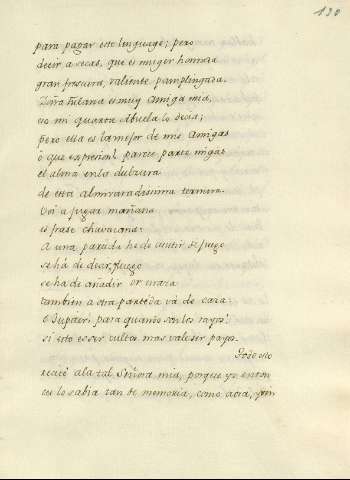 120
para pagar este lenguage; pero
decir a secas, que es muger honrrada
gran frescura, valiente pamplingada.
Doña fulana es muy amiga mia,
eso mi quarta Abuela lo decia;
pero ella es la mejor de mis Amigas
ô que expresion! parece
el alma en la dulzura
de esta almivaradissima ternura.
Voi a jugar mañana
es frase chavacana:
A una parada he de decir de juego
se há de decir, juego
se ha de añadir
tambien a otra parte dá de cara
ô Jupiter! para quando son los rayos!
si esto es ser cultos mas vale ser payos.
Todo esto
recaè a la tal Señora mia, porque yo enton
ces lo sabia tan de memoria, como aora,